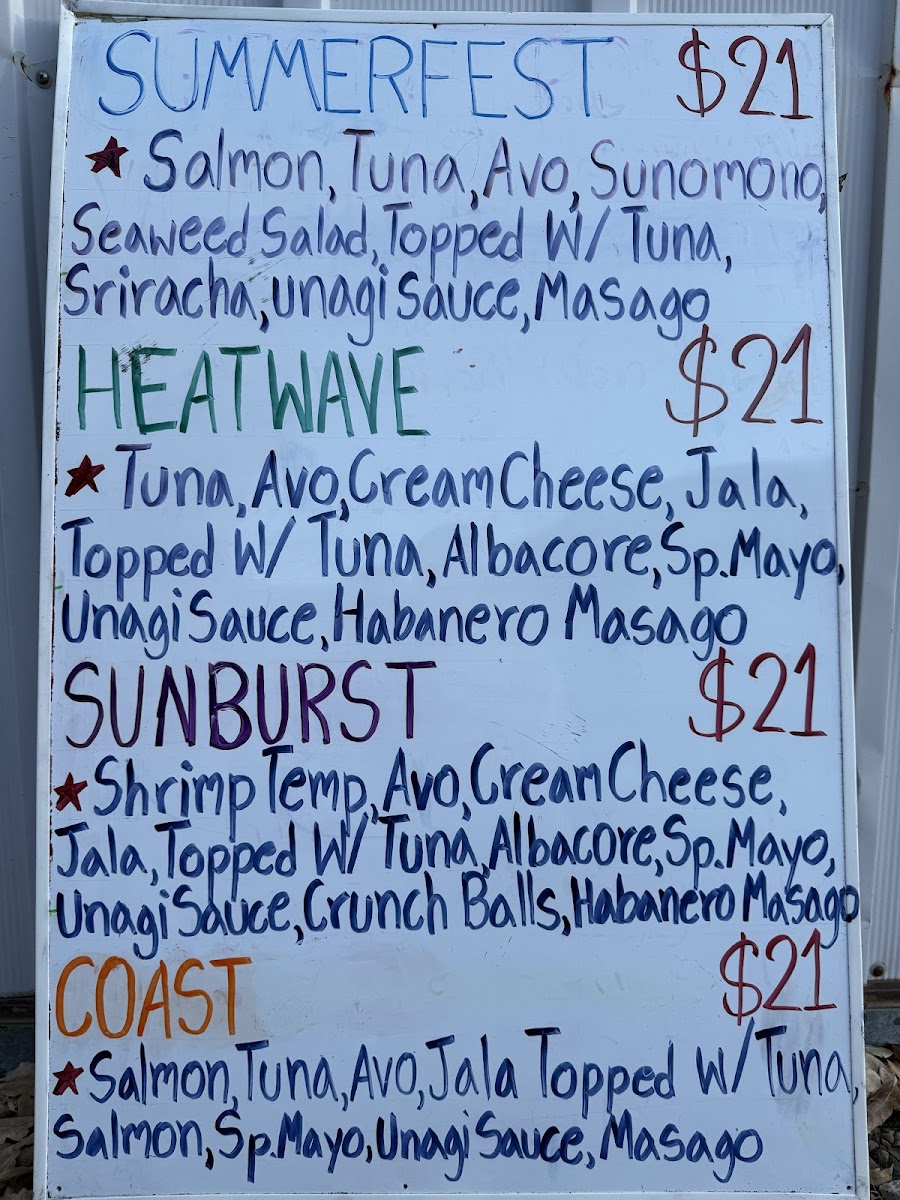 SUMMERFEST $21
★ Salmon, Tuna, Avo, Sunomono,
Seaweed Salad, Topped W/ Tuna,
Sriracha, unagi sauce, Masago
HEATWAVE $21
★ Tuna, Avo, Cream Cheese, Jala,
Topped W/ Tuna, Albacore, Sp. Mayo,
Unagi Sauce, Habanero Masago
SUNBURST $21
★ Shrimp Temp, Avo, Cream Cheese,
Jala, Topped W/ Tuna, Albacore, Sp. Mayo,
Unagi Sauce, Crunch Balls, Habanero Masago
COAST $21
★ Salmon, Tuna, Avo, Jala Topped W/ Tuna,
Salmon, Sp. Mayo, Unagi Sauce, Masago